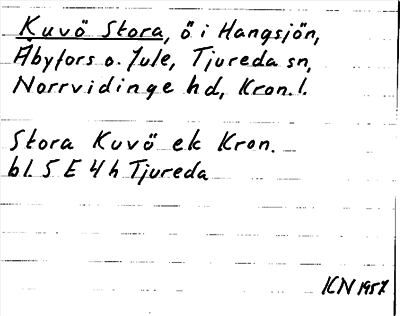 Kuvö Stora, ö i Hangsjön,
Åbyfors o. Jule, Tjureda sn,
Norrvidinge hd, Kron. l.
Stora Kuvö ek Kron.
bl. 5 E 4 h Tjureda
KN 1957